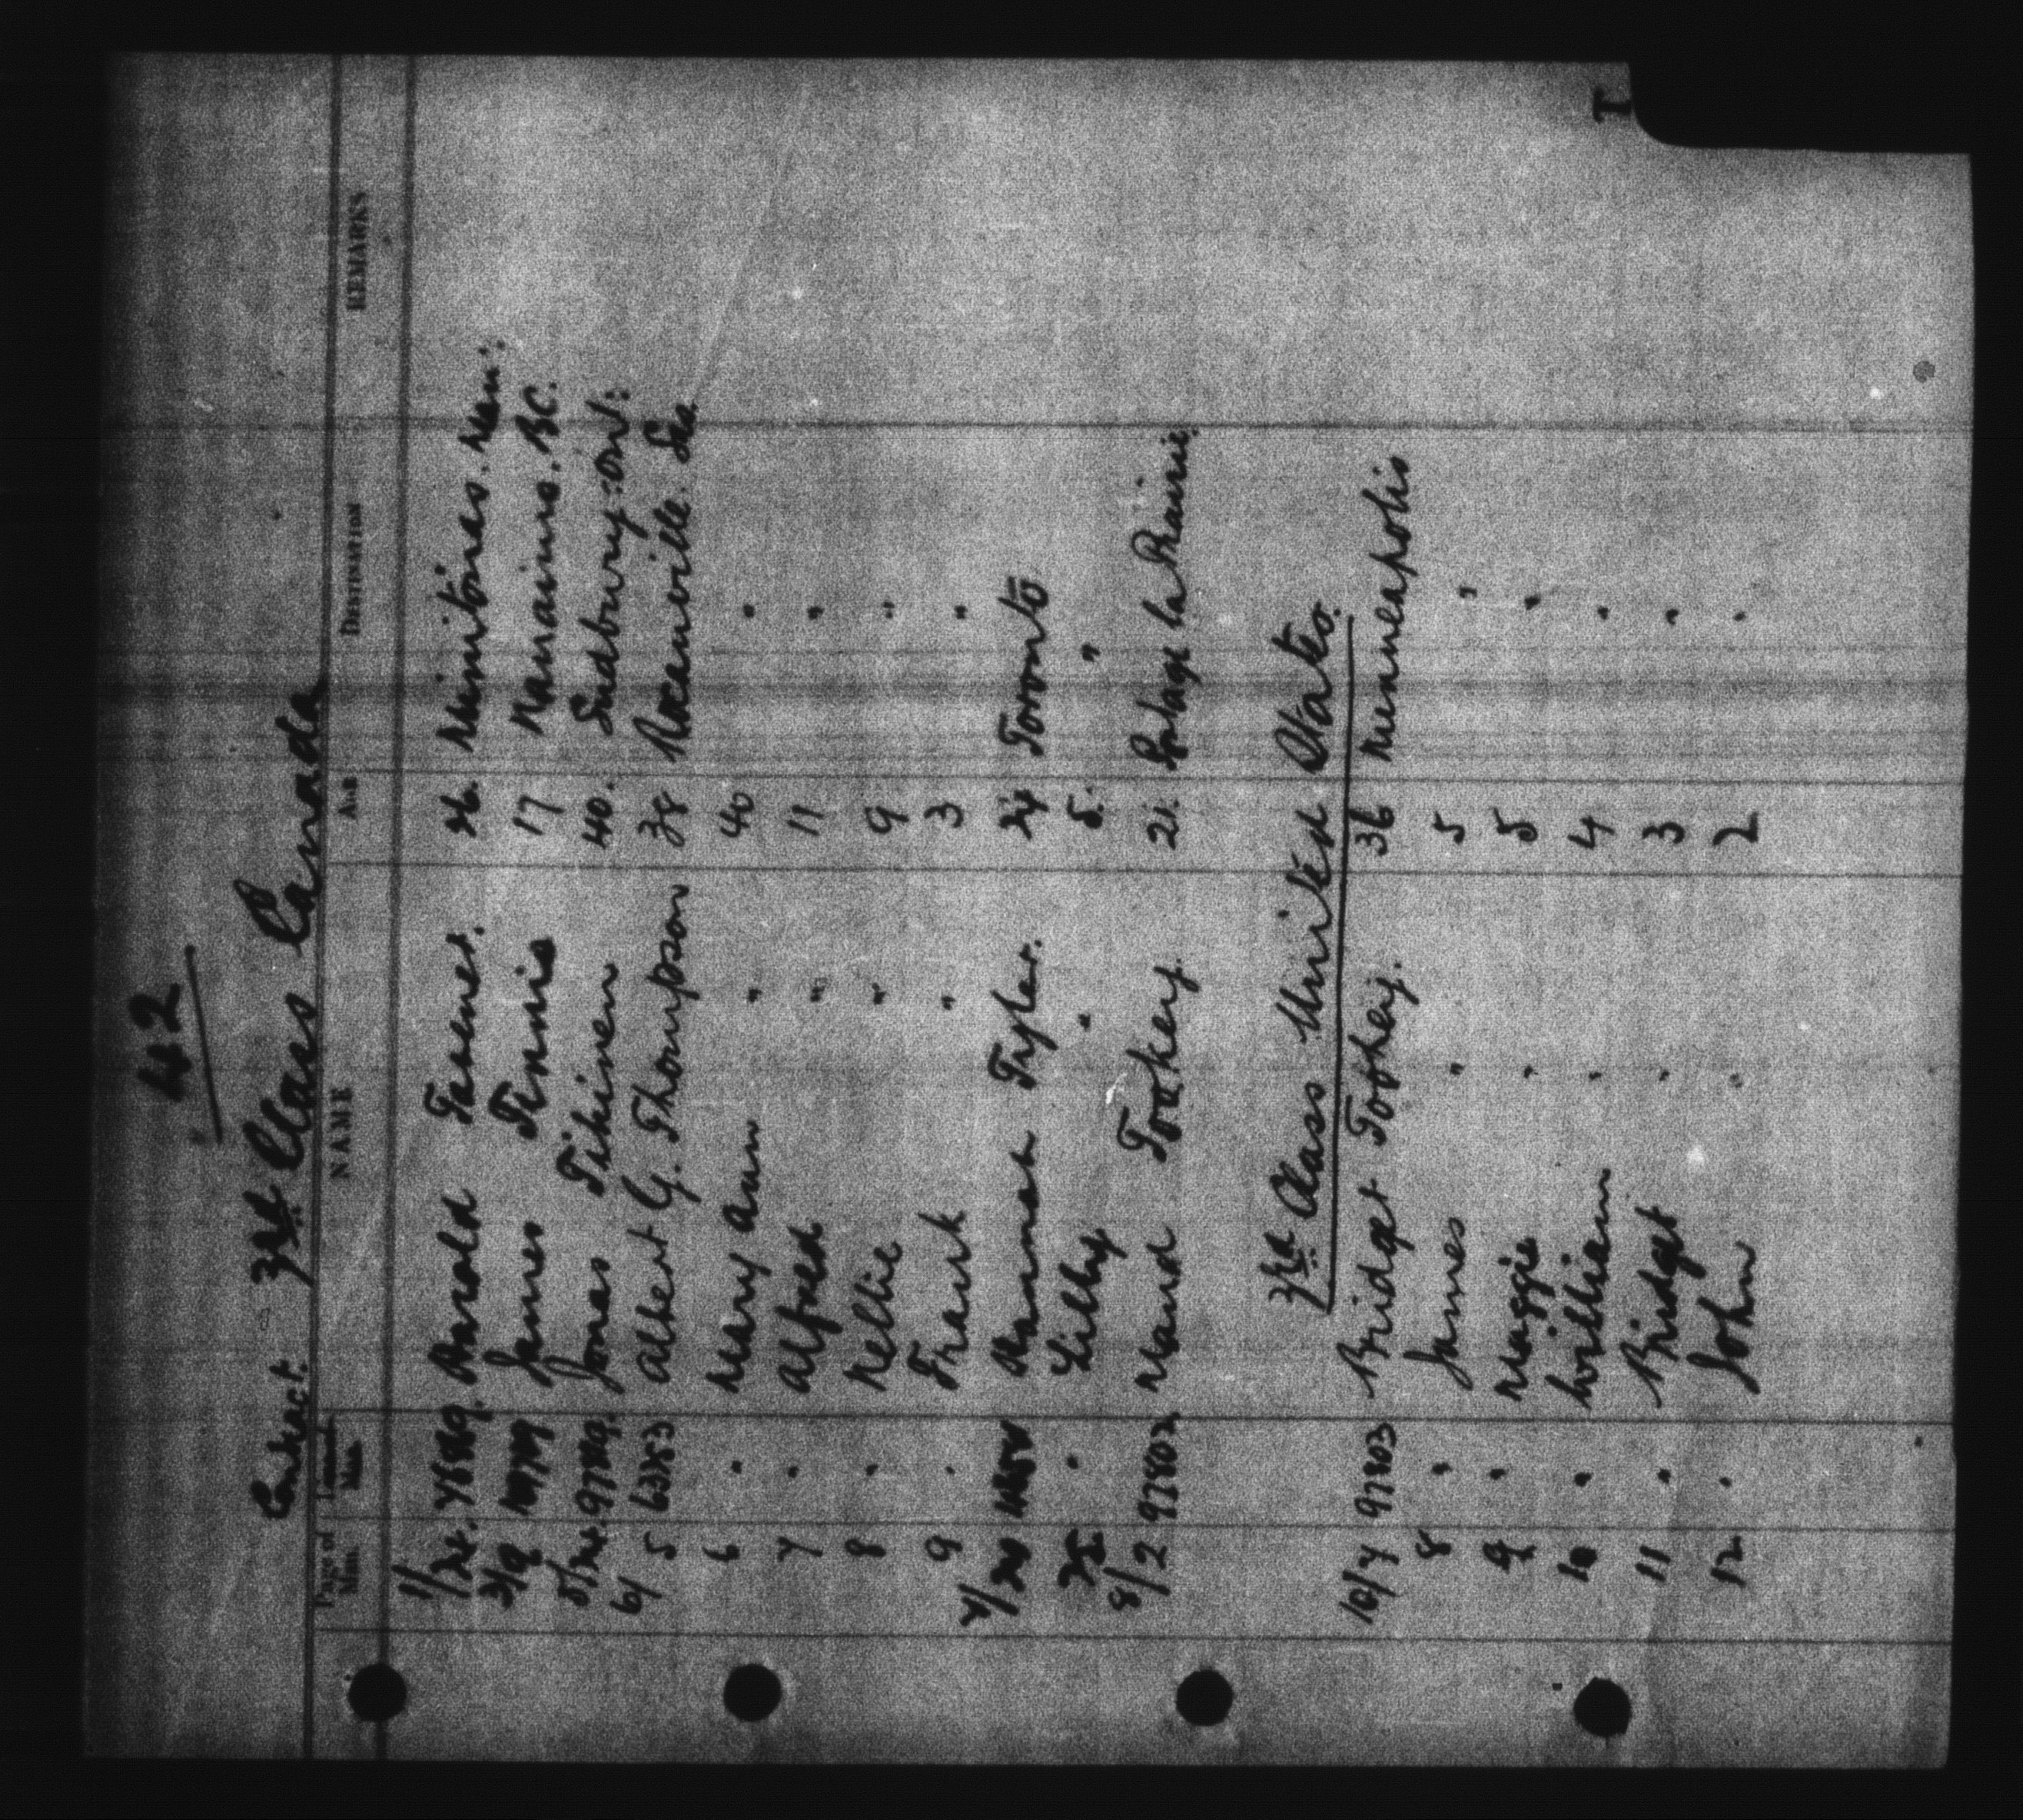 42
Contract. 3rd Class Canada
Page of Man. NAME AGE DESTINATION REMARKS
1/24. Harold Taverner. 26. Minitonas. Man:
2/9 James Tennis 17 Nanaimo. BC.
5/24. 97889. Jonas Tikinen 40. Sudbury: Ont:
6/5 63253 Albert G. Thompson 38 Rocanville. Sas.
6 " Mary Ann " 40 "
7 " Alfred " 11 "
8 " Nellie " 9 "
9 " Frank " 3 "
7/20 Hannah Tyler. 24 Toronto
" Lilby " 5. "
8/2 97802 Maud Tookey. 21. Portage la Prairie.
3rd Class United States.
10/7 97803 Bridget Toohey. 36 Minneapolis
8 " James " 5 "
9 " Maggie " 5 "
10 " William " 4 "
11 " Bridget " 3 "
12 " John " 2 "
T